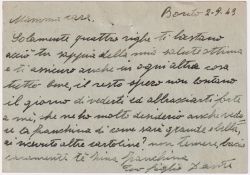 Mamma cara. Bento 2.9.43
Solamente quattro righe ti bastano
acciò tu sappia della mia salute ottima
e ti assicuro anche in ogni altra cosa
tutto bene, il resto spero non lontano
il giorno di vederti ed abbracciarti forte
a me, che ho molto desiderio anche vede
re la franchina di come sarà grande e bella,
ai ricevuto altre cartoline? non temere, bacia
caramente te e
franchina
tuo figlio Dante